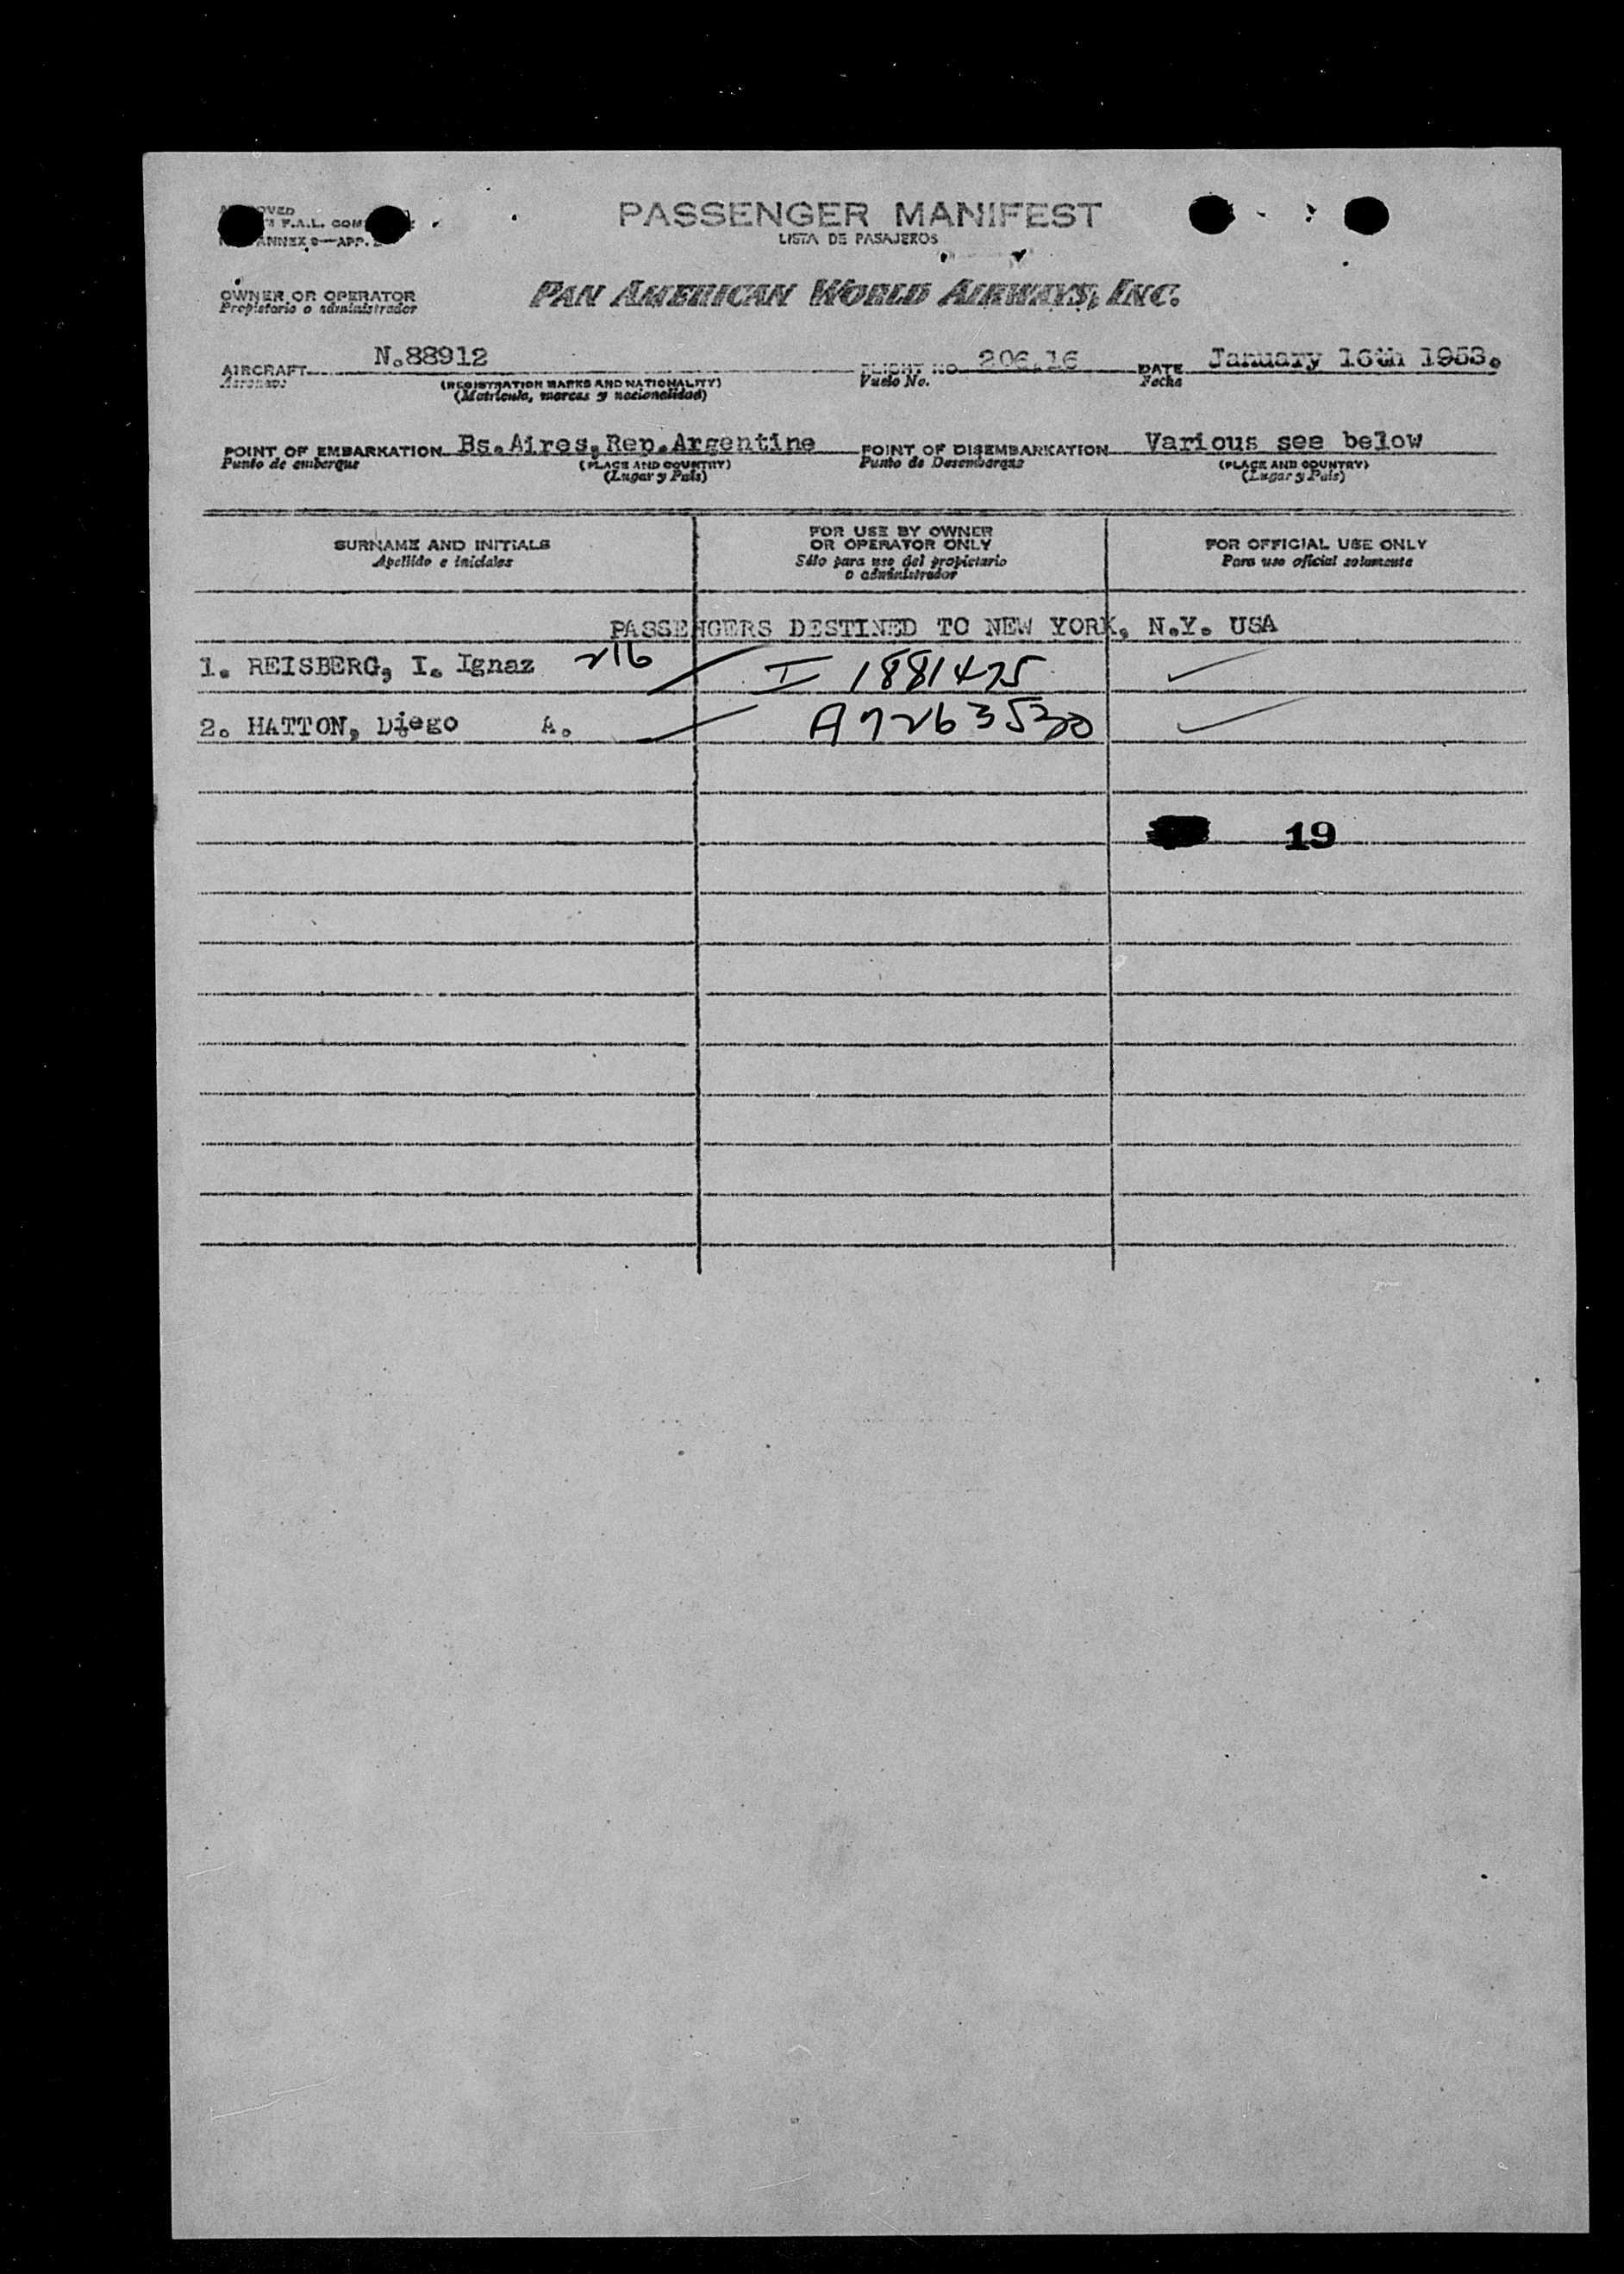 PASSENGER MANIFEST
LISTA DE PASAJEROS
F.A.L. COM
ANNEX 9—APP.
OWNER OR OPERATOR
Propietario o administrador
PAN AMERICAN WORLD AIRWAYS, INC.
AIRCRAFT N.88912 FLIGHT NO. 206.16 DATE January 16th 1953.
Aeronave (REGISTRATION MARKS AND NATIONALITY) Vuelo No. Fecha
(Matrícula, marcas y nacionalidad)
POINT OF EMBARKATION Bs.Aires,Rep.Argentine POINT OF DISEMBARKATION Various see below
Punto de embarque (PLACE AND COUNTRY) Punto de Desembarque (PLACE AND COUNTRY)
(Lugar y País) (Lugar y País)
SURNAME AND INITIALS
Apellido e iniciales
FOR USE BY OWNER
OR OPERATOR ONLY
Sólo para uso del propietario
o administrador
FOR OFFICIAL USE ONLY
Para uso oficial solamente
PASSENGERS DESTINED TO NEW YORK, N.Y. USA
1. REISBERG, I. Ignaz 216 I 1881475
2. HATTON, Diego A. A7263530
19